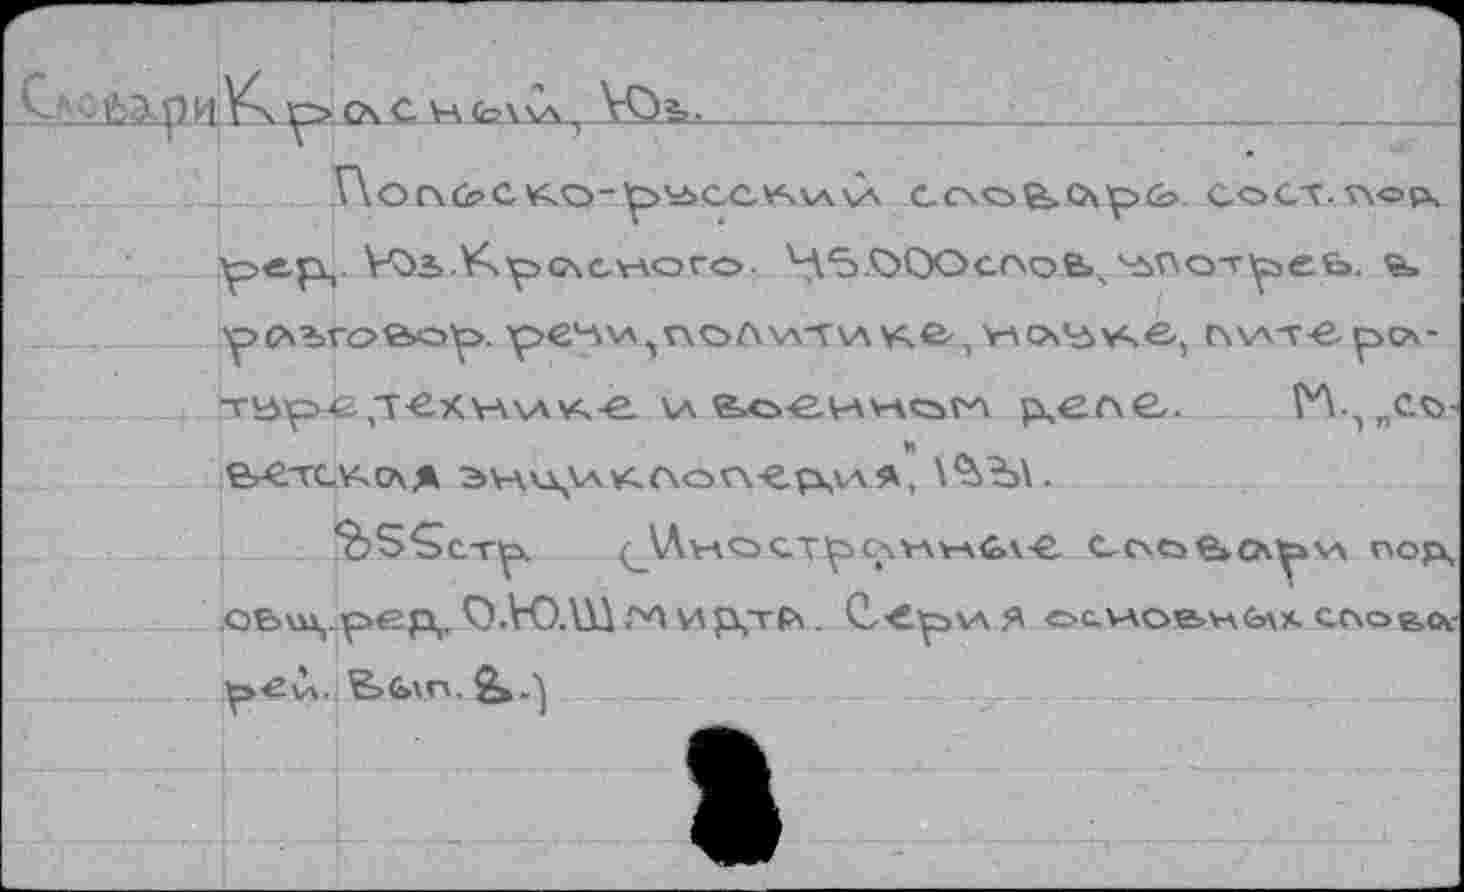 Словари Красный, Юз.
Польско-русский словарь сост. под
ред. Юз. Красного. 45.000 слов, употреб. в
разговор. речи, политике, науке, литера-
туре, технике и военном деле. М., „Со-
ветская энциклопедия", 1931.
855 стр. (Иностранные словари под
общ. ред. О.Ю.Шмидта. Серия основных слова-
рей. Вып. 8.)